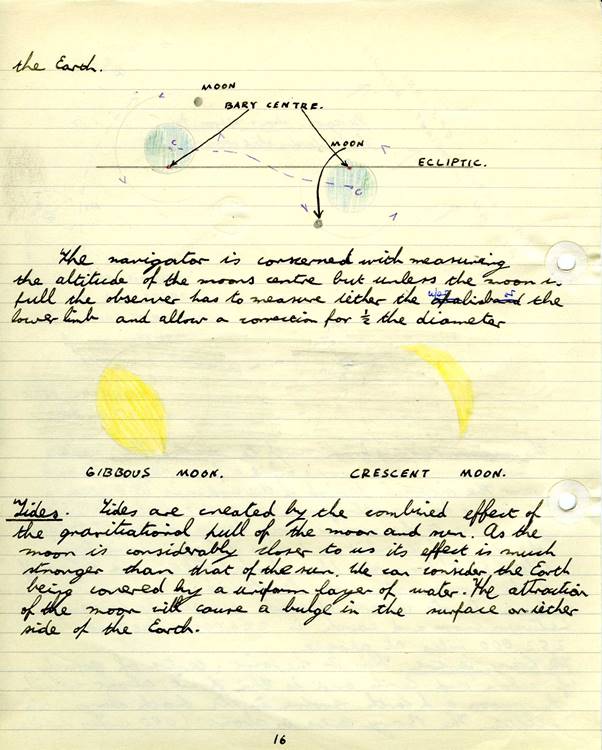 the Earth.
MOON
BARY CENTRE.
MOON
C
ECLIPTIC.
C
The navigator is concerned with measuring
the altitude of the moons centre but unless the moon is
full the observer has to measure iether the upper or the
lower limb and allow a correction for ½ the diameter
GIBBOUS MOON.
CRESCENT MOON.
Tides. Tides are created by the combined effect of
the gravitiational pull of the moon and sun. As the
moon is considerably closer to us its effect is much
stronger than that of the sun. We can consider the Earth
being covered by a uniform layer of water. The attraction
of the moon will cause a bulge in the surface on iether
side of the Earth.
16